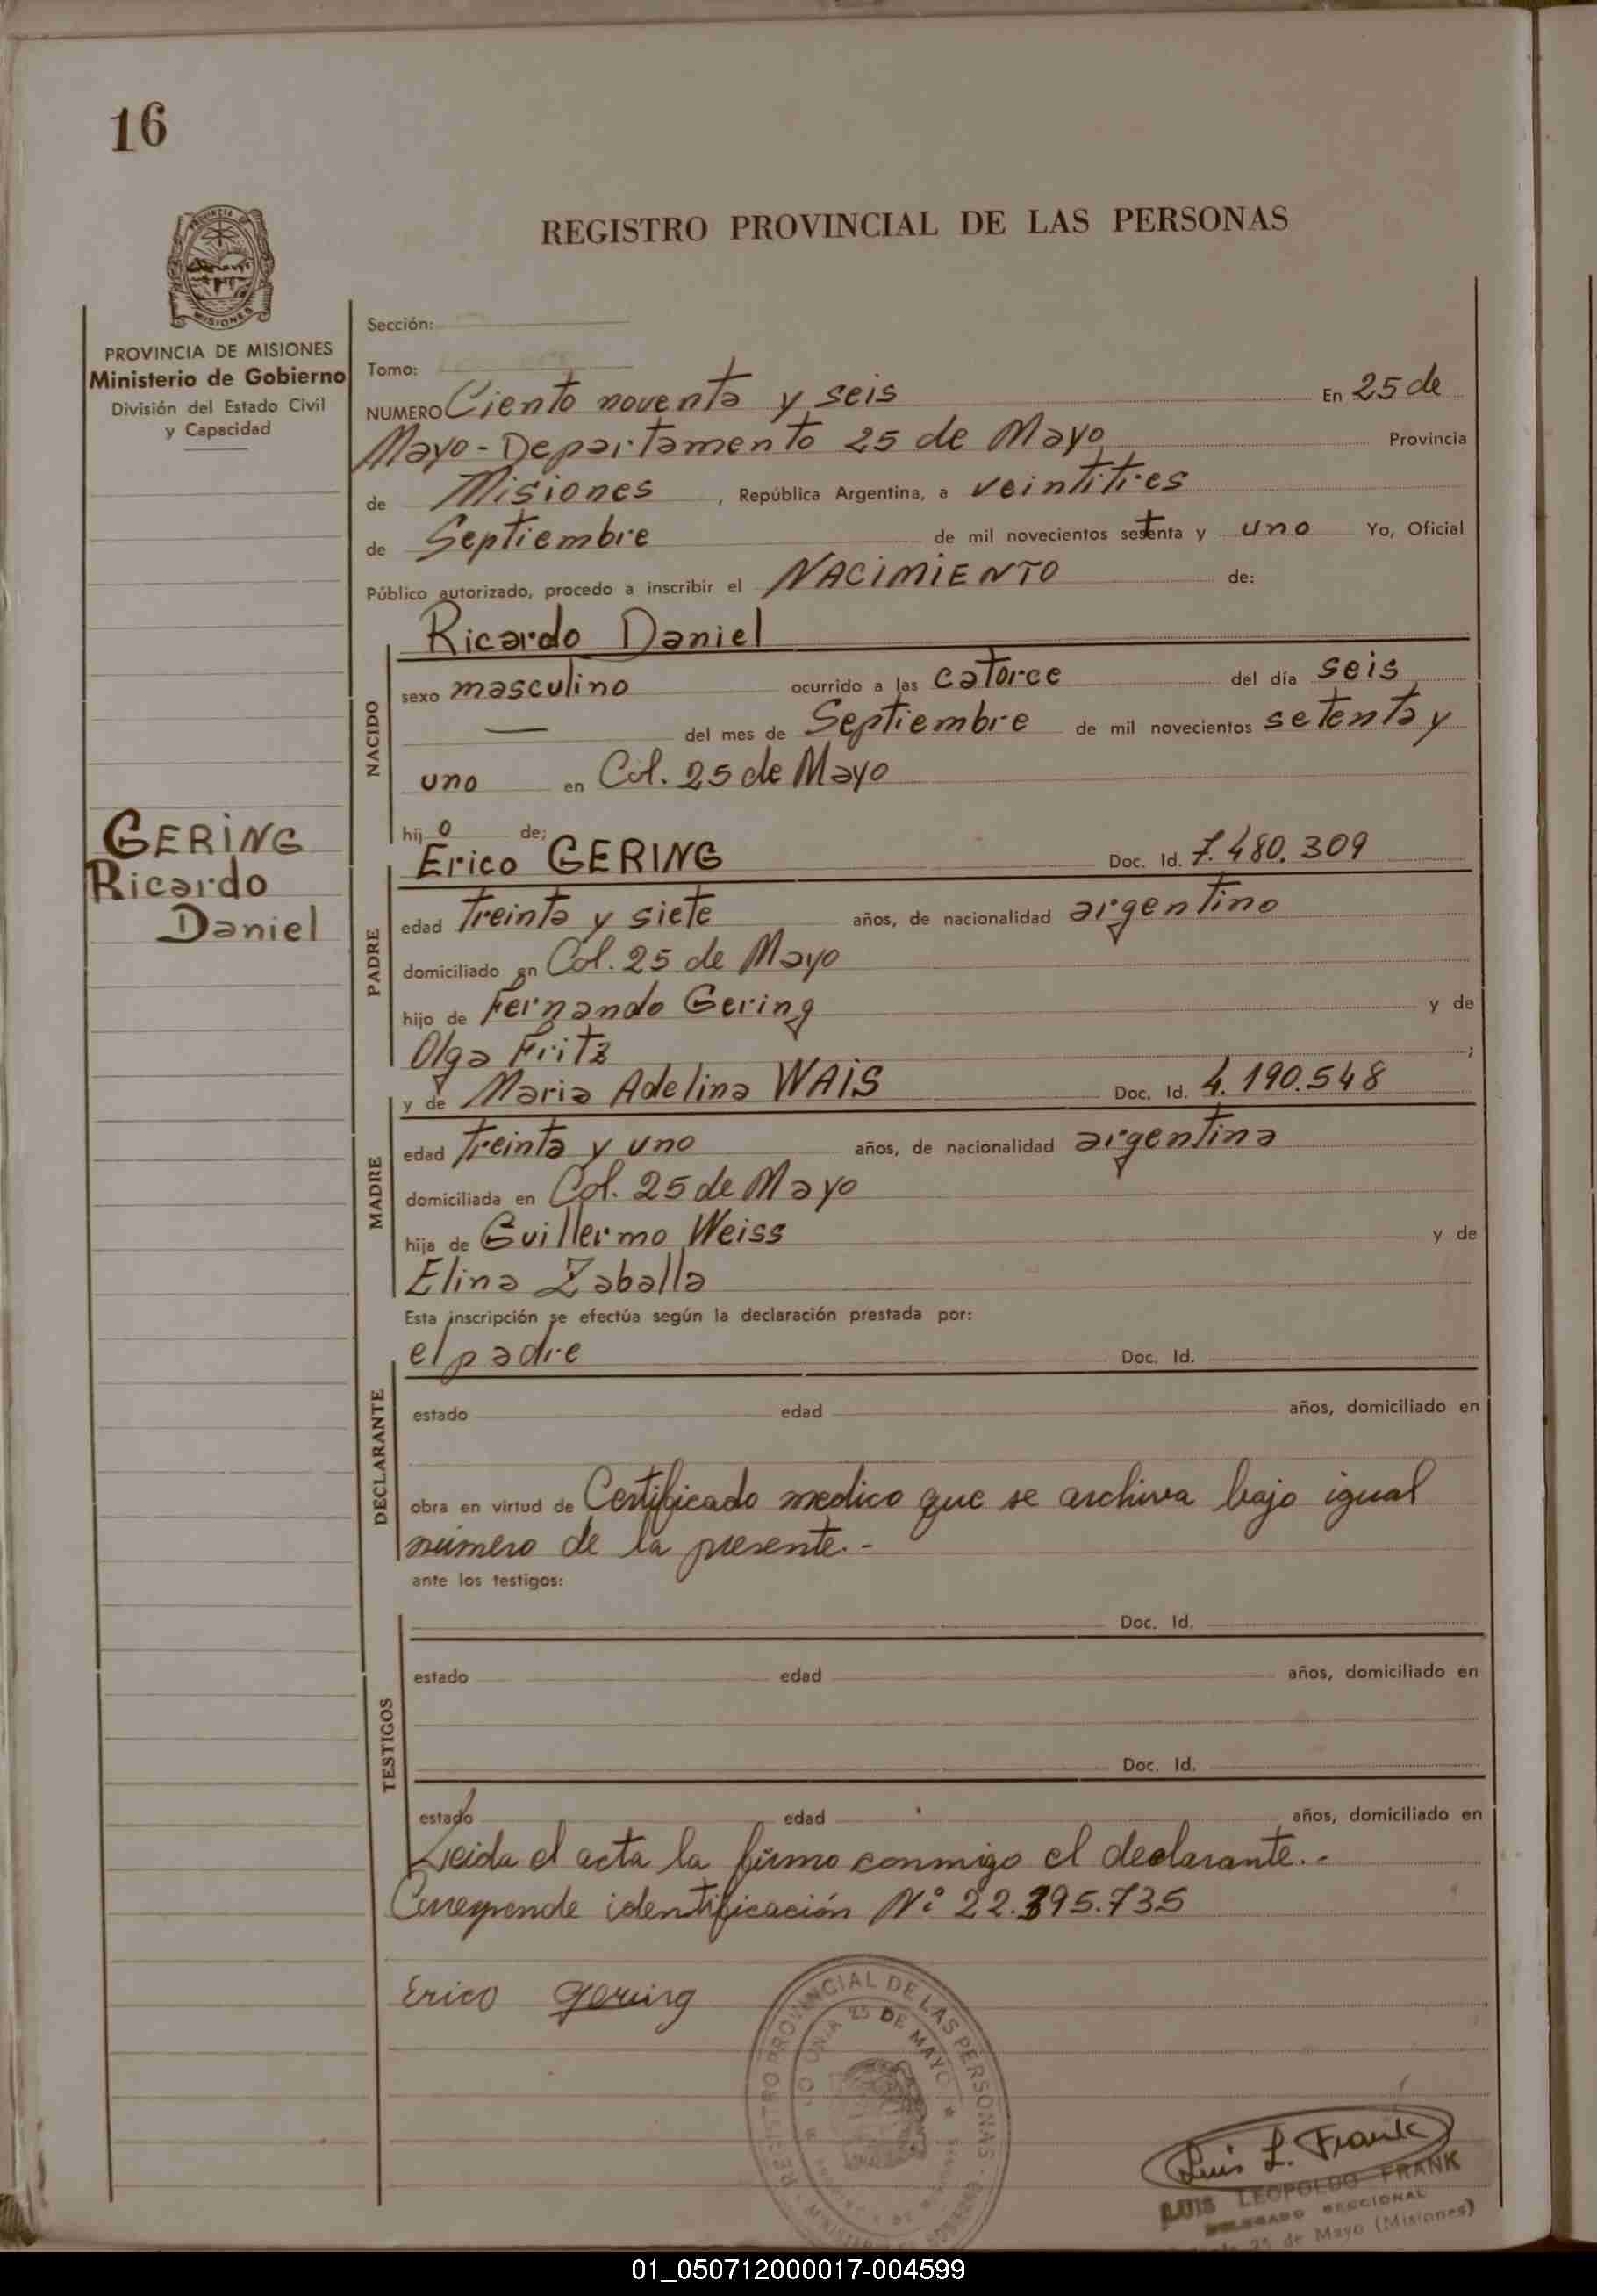 16
PROVINCIA DE MISIONES
MISIONES
PROVINCIA DE MISIONES
Ministerio de Gobierno
División del Estado Civil
y Capacidad
GERING
Ricardo
Daniel
REGISTRO PROVINCIAL DE LAS PERSONAS
Sección:
Tomo:
NUMERO Ciento noventa y seis En 25 de
Mayo - Departamento 25 de Mayo Provincia
de Misiones, República Argentina, a veintitres
de Septiembre de mil novecientos setenta y uno Yo, Oficial
Público autorizado, procedo a inscribir el NACIMIENTO de:
NACIDO
Ricardo Daniel
sexo masculino ocurrido a las catorce del día seis
— del mes de Septiembre de mil novecientos setenta y
uno en Col. 25 de Mayo
hij o de;
PADRE
Erico GERING Doc. Id. 7.480.309
edad treinta y siete años, de nacionalidad argentino
domiciliado en Col. 25 de Mayo
hijo de Fernando Gering y de
Olga Fritz ;
MADRE
y de Maria Adelina WAIS Doc. Id. 4.190.548
edad treinta y uno años, de nacionalidad argentina
domiciliada en Col. 25 de Mayo
hija de Guillermo Weiss y de
Elina Zaballa
Esta inscripción se efectúa según la declaración prestada por:
DECLARANTE
el padre Doc. Id.
estado edad años, domiciliado en
obra en virtud de Certificado medico que se archiva bajo igual
número de la presente.-
ante los testigos:
TESTIGOS
Doc. Id.
estado edad años, domiciliado en
Doc. Id.
estado edad años, domiciliado en
Leida el acta la firma conmigo el declarante.-
Corresponde identificación Nº 22.395.735
Erico Gering
REGISTRO PROVINCIAL DE LAS PERSONAS
25 DE MAYO
Luis L. Frank
LUIS LEOPOLDO FRANK
DELEGADO SECCIONAL
25 de Mayo (Misiones)
01_050712000017-004599